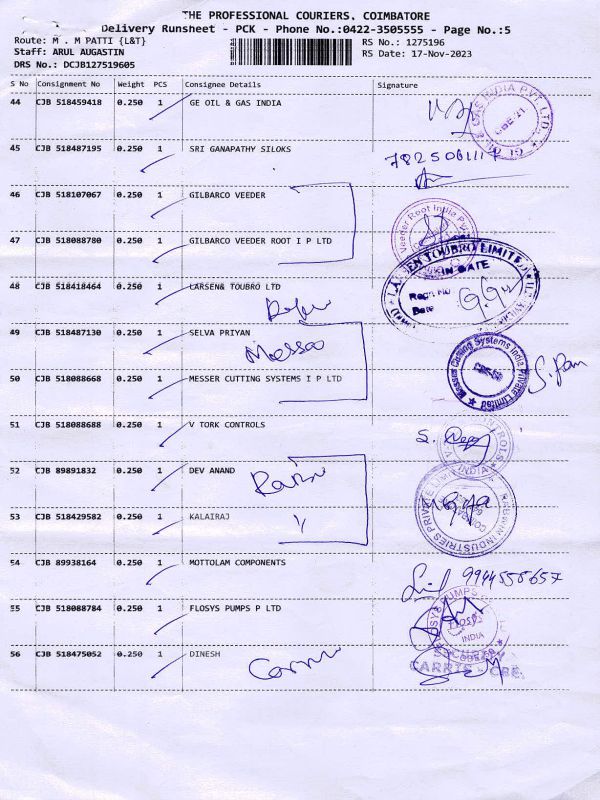 THE PROFESSIONAL COURIERS. COIMBATORE
Delivery Runsheet - PCK - Phone No.:0422-3505555 - Page No.:5
Route: M . M PATTI {L&T}
RS No.: 1275196
Staff: ARUL AUGASTIN
RS Date: 17-Nov-2023
DRS No.: DCJB127519605
S No Consignment No Weight PCS Consignee Details Signature
44 CJB 518459418 0.250 1 GE OIL & GAS INDIA
45 CJB 518487195 0.250 1 SRI GANAPATHY SILOKS
46 CJB 518107067 0.250 1 GILBARCO VEEDER
47 CJB 518088780 0.250 1 GILBARCO VEEDER ROOT I P LTD
Veeder Root India
48 CJB 518418464 0.250 1 LARSEN& TOUBRO LTD
LARSEN TOUBRO LIMITED
IN GATE
Regn No
Date
49 CJB 518487130 0.250 1 SELVA PRIYAN
Messer Cutting Systems India Private Limited
50 CJB 518088668 0.250 1 MESSER CUTTING SYSTEMS I P LTD
51 CJB 518088688 0.250 1 V TORK CONTROLS
52 CJB 89891832 0.250 1 DEV ANAND
53 CJB 518429582 0.250 1 KALAIRAJ
INDUSTRIES PRIVATE LIMITED
54 CJB 89938164 0.250 1 MOTTOLAM COMPONENTS
9944558657
55 CJB 518088784 0.250 1 FLOSYS PUMPS P LTD
INDIA
56 CJB 518475052 0.250 1 DINESH